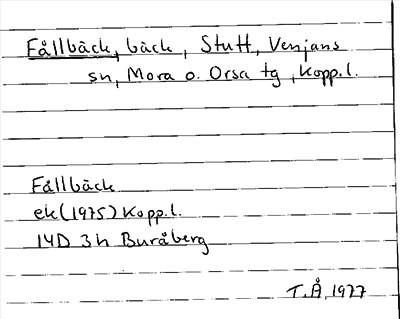 Fållbäck, bäck, Stutt, Venjans
sn, Mora o. Orsa tg, Kopp.l.
Fållbäck
ek (1975) Kopp.l.
14D 3h Buråberg
T.Å. 1977